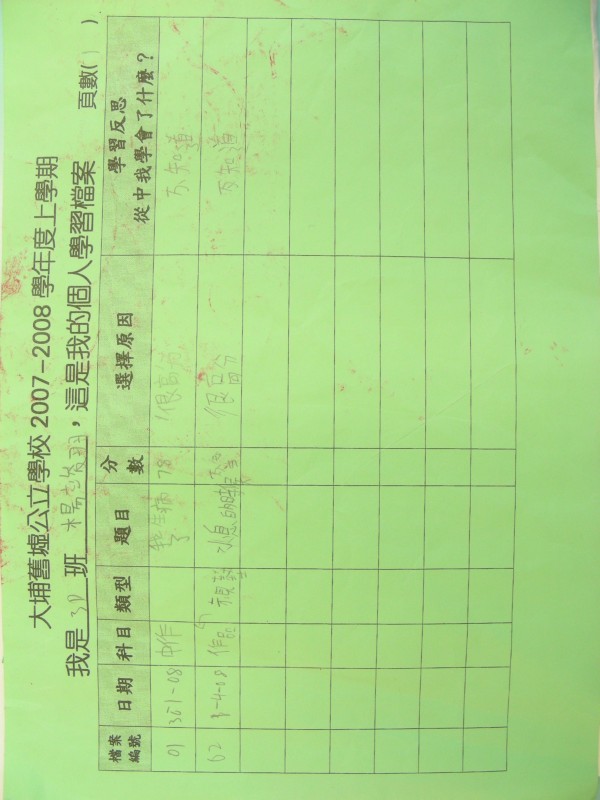 大埔舊墟公立學校 2007-2008 學年度上學期
我是 3D 班 ，這是我的個人學習檔案 頁數( 1 )
檔案編號 日期 科目 類型 題目 分數 選擇原因 學習反思 從中我學會了什麼？
01 中作 78 很高分 不知道
02 8-4-08 作品 很高分 不知道